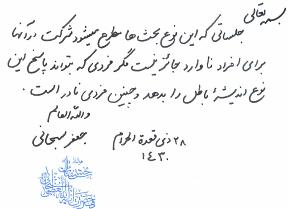 بسمه تعالی
جلساتی که این نوع بحث ها مطرح میشود شرکت در آنها
برای افراد ناوارد جائز نیست مگر فردی که بتواند پاسخ این
نوع اندیشۀ باطل را بدهد و چنین فردی نادر است .
والله العالم
جعفر سبحانی
۲۸ ذی قعدة الحرام
۱۴۳۰